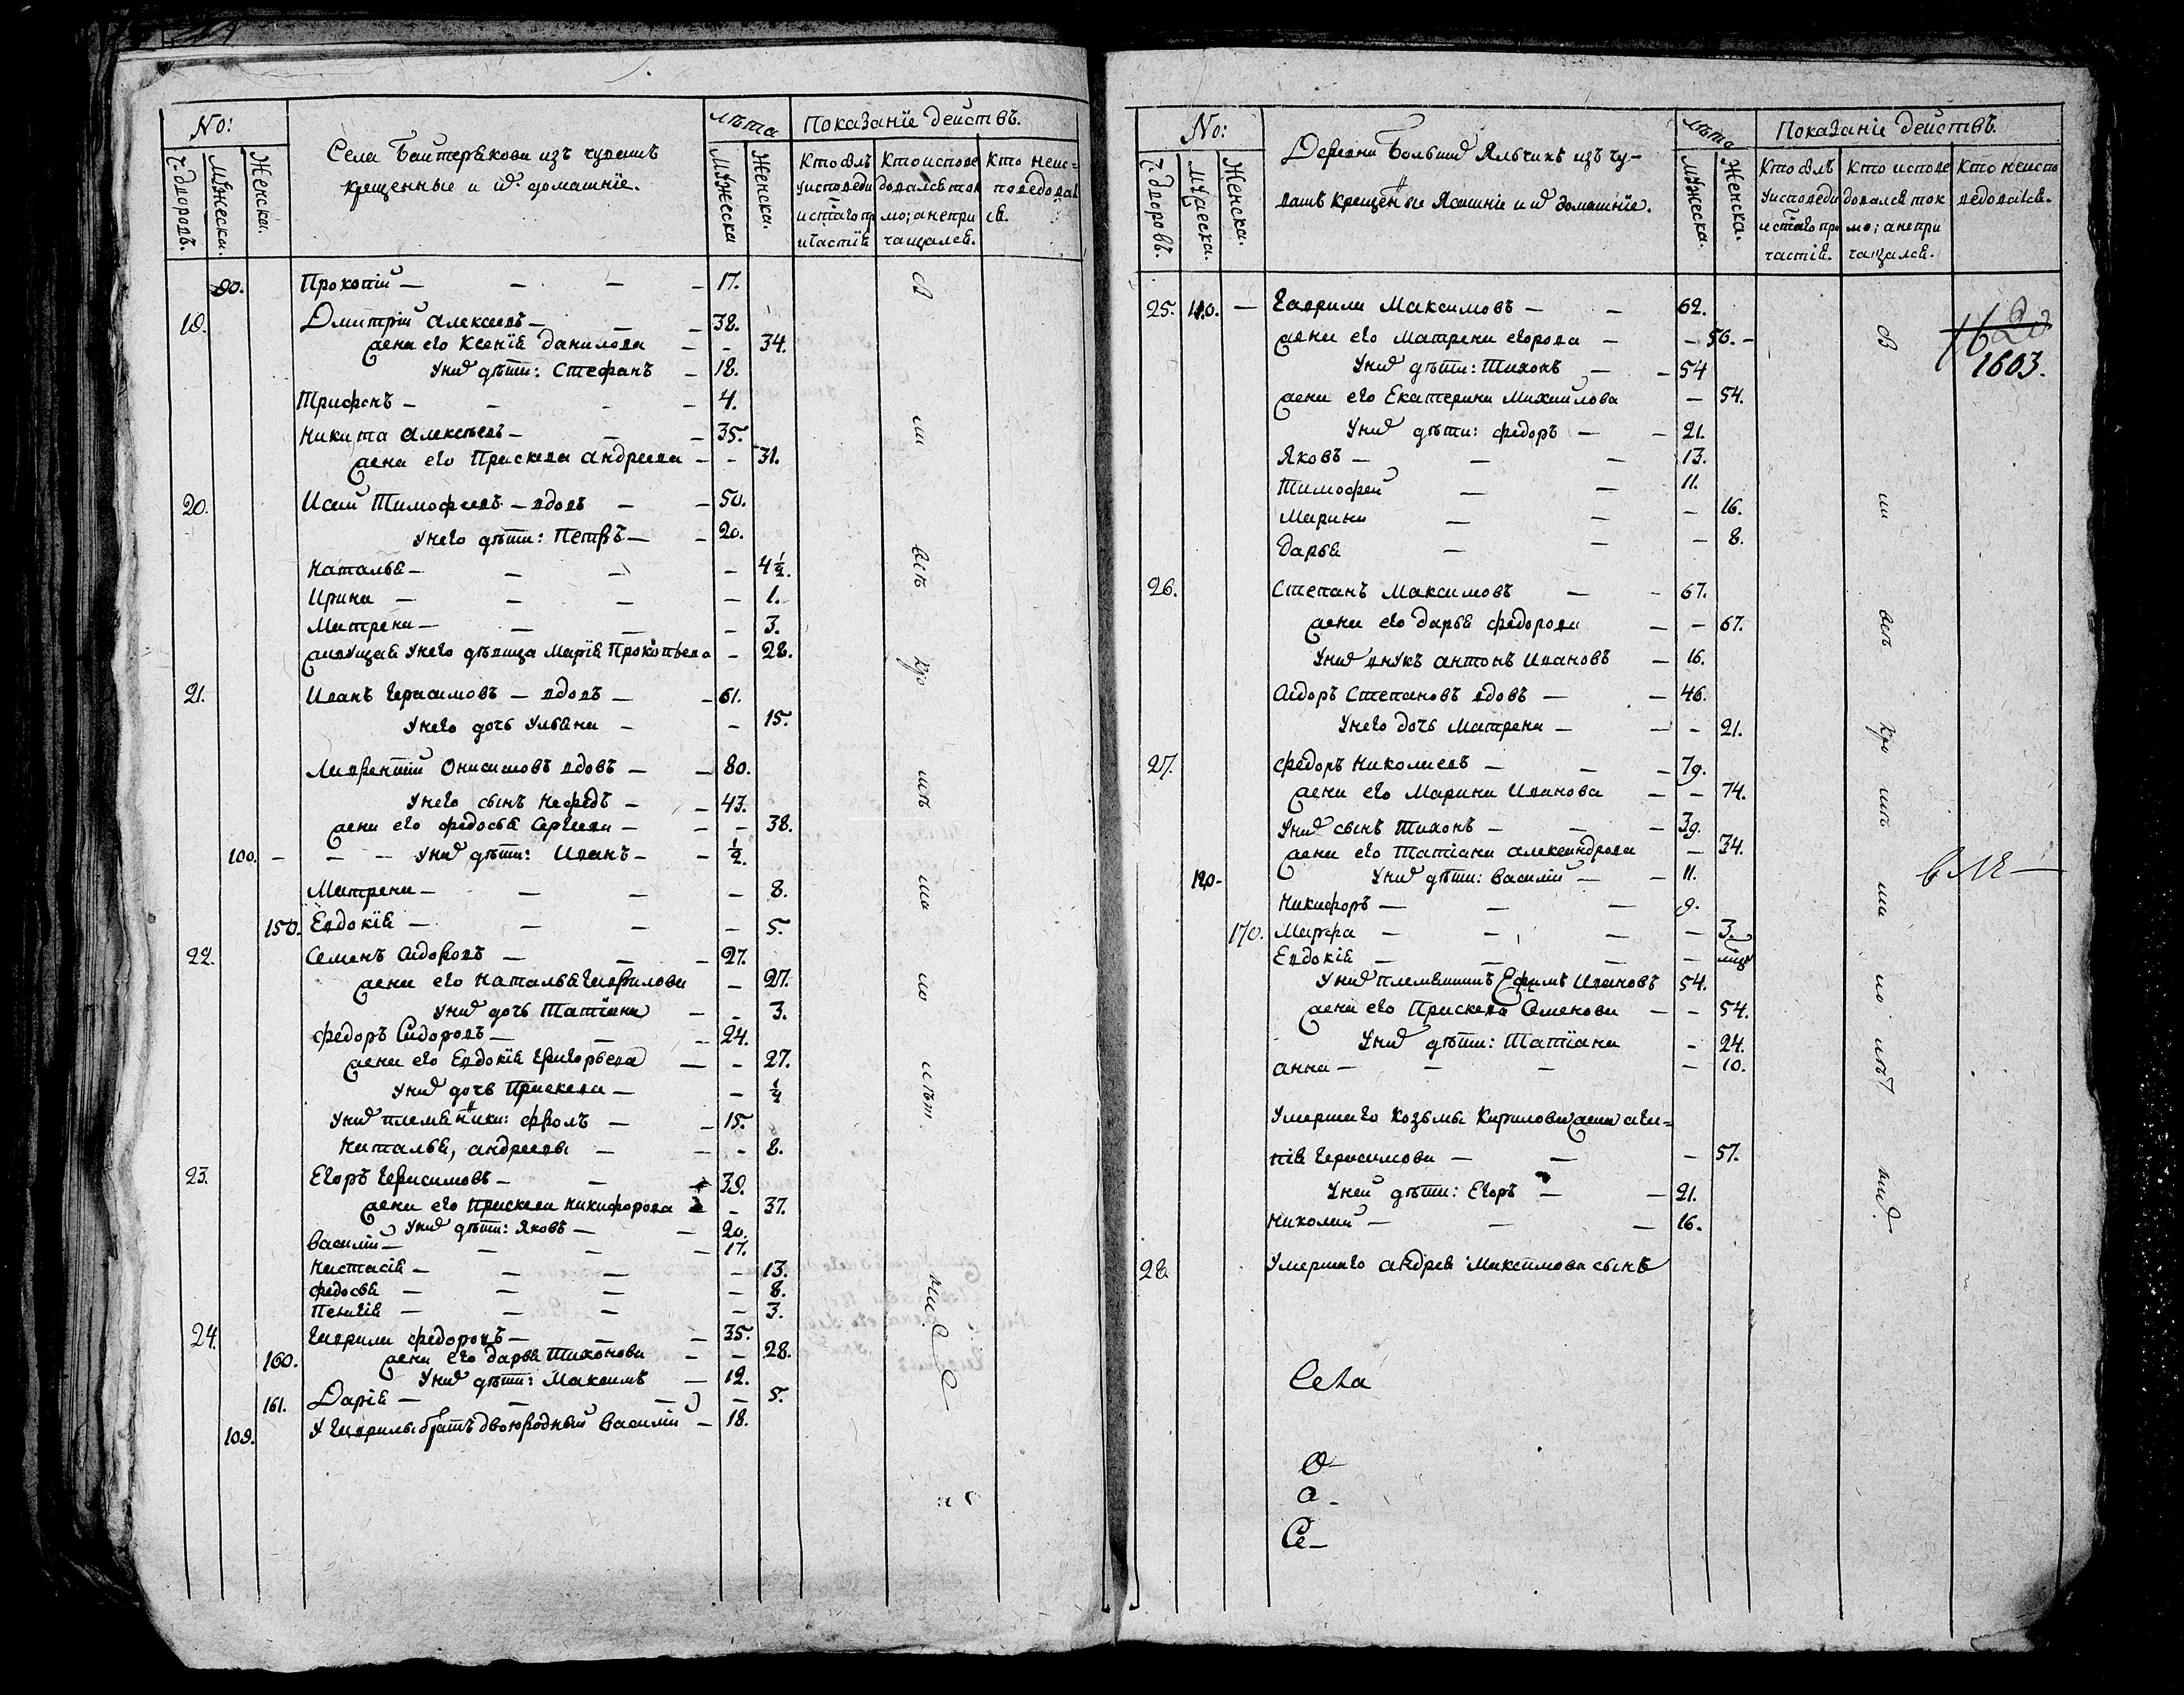 No:
Села Баитерѣкова изъ чувашъ
крещенные и ихъ домашнїе.
лѣта
Показанїе деиствъ.
Ч: дворовъ.
Мужеска.
Женска.
Мужеска
Женска.
Кто былъ у исповеди и стаго причастїѧ
Кто исповедовалсѧ токмо; а не причащалсѧ.
Кто неисповедовалсѧ.
90. Прокопїй — — — 17.
19. Дмитрїй Алексѣевъ — — 38.
жена его Ксенїѧ Данилова — — 34.
У нихъ дѣти: Стефанъ — 18.
Трифонъ — — — 4.
Никита Алексѣевъ — — 35.
жена его Прасковѧ Андреева — — 31.
20. Исай Тимофеевъ — вдовъ — — 50.
У него дѣти: Петръ — — 20.
Наталья — — — — 4½.
Ирина — — — — 1.
Матрена — — — — 3.
живущаѧ у него дѣвица Марїѧ Прокопьева — 28.
21. Иванъ Герасимовъ — вдовъ — — 61.
У него дочь Ульѧна — — 15.
Лаврентїй Онисимовъ вдовъ — — 80.
У него сынъ Нефедъ — — 43.
жена его Федосьѧ Сергеева — — — 38.
100. — — — У нихъ дѣти: Иванъ — — ½.
Матрена — — — — 8.
150. Евдокїѧ — — — — 5.
22. Семенъ Сидоровъ — — — 27.
жена его Натальѧ Гаврилова — 27.
У нихъ дочь Татїана — — 3.
Федоръ Сидоровъ — — — 24.
жена его Евдокїѧ Григорьева — — 27.
У нихъ дочь Прасковѧ — —
У нихъ племѧнники: Фролъ — — 15.
Натальѧ, Андреевы — — — 8.
23. Егоръ Герасимовъ — — 39.
жена его Прасковѧ Никифорова — 37.
У нихъ дѣти: Яковъ — — 20.
Василїй — — — — 17.
Настасїѧ — — — — 13.
Федосьѧ — — — — 8.
Пелагїѧ — — — — 3.
24. Гаврила Федоровъ — — — 35.
160. жена его Дарьѧ Тихонова — — 28.
У нихъ дѣти: Максимъ — 12.
161. Дарїѧ — — — — 5.
109. У Гаврилы братъ двоюродный Василїй — 18.
No:
Деревни Большихъ Яльчикъ изъ чу-
вашъ крещенные Ясашнїе и ихъ домашнїе.
лѣта
Показанїе деиствъ.
Ч: дворовъ.
Мужеска.
Женска.
Мужеска.
Женска.
Кто былъ у исповеди и стаго причастїѧ.
Кто исповедовалсѧ токмо; а не причащалсѧ.
Кто неисповедовалсѧ.
1603.
25. 110. — Гаврила Максимовъ — — 62.
жена его Матрена Егорова — — 56. —
У нихъ дѣти: Тихонъ — — 54
жена его Екатерина Михайлова — 54.
У нихъ дѣти: Федоръ — — 21.
Яковъ — — — 13.
Тимофей — — 11.
Марина — — — 16.
Дарьѧ — — — 8.
26. Степанъ Максимовъ — — 67.
жена его Дарьѧ Федорова — — 67.
У нихъ внукъ Антонъ Ивановъ — 16.
Сидоръ Степановъ вдовъ — — 46.
У него дочь Матрена — — — 21.
27. Федоръ Николаевъ — — — 79.
жена его Марина Иванова — — 74.
У нихъ сынъ Тихонъ — — — 39.
жена его Татїана Александрова — 34.
120 — У нихъ дѣти: Василїй — — 11.
Никифоръ — — — 9.
170. Марфа — — — — 3.
Евдокїѧ — — — —
У нихъ племѧнникъ Ефимъ Ивановъ 54.
жена его Прасковѧ Семенова — — 54.
У нихъ дѣти: Татїана — 24.
Анна — — — — 10.
Умершаго Козьмы Кирилова жена Ага-
пїѧ Герасимова — — — 57.
У ней дѣти: Егоръ — — 21.
Николай — — — 16.
28. Умершаго Андреѧ Максимова сынъ
Села
О —
а —
Се —